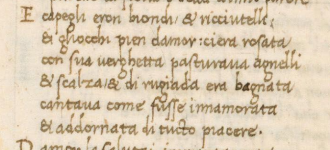 E capegli eron biondi & ricciutelli;
& gliocchi pien damor: ciera rosata
con sua uerghetta pasturaua agnelli
& scalza, & di rugiada era bagnata
cantaua come fusse innamorata
& addornata di tucto piacere.